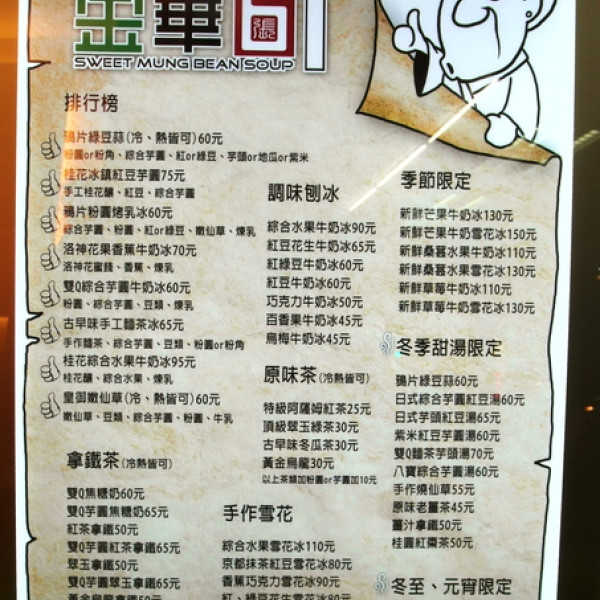 金華
張
SWEET MUNG BEAN SOUP
排行榜
鴉片綠豆蒜(冷、熱皆可)60元
粉圓or粉角、綜合芋圓、紅or綠豆、芋頭or地瓜or紫米
桂花冰鎮紅豆芋圓75元
手工桂花釀、紅豆、綜合芋圓
鴉片粉圓烤乳冰60元
綜合芋圓、粉圓、紅or綠豆、嫩仙草、煉乳
洛神花果香蕉牛奶冰70元
洛神花蜜餞、香蕉、煉乳
雙Q綜合芋圓牛奶冰60元
粉圓、綜合芋圓、豆類、煉乳
古早味手工麵茶冰65元
手作麵茶、綜合芋圓、豆類、粉圓or粉角
桂花綜合水果牛奶冰95元
桂花釀、綜合水果、煉乳
皇御嫩仙草(冷熱皆可)60元
嫩仙草、豆類、綜合芋圓、粉圓、牛乳
拿鐵茶(冷熱皆可)
雙Q焦糖奶60元
雙Q芋圓焦糖奶65元
紅茶拿鐵50元
雙Q芋圓紅茶拿鐵65元
翠玉拿鐵50元
雙Q芋圓翠玉拿鐵65元
黃金烏龍拿鐵50元
調味刨冰
綜合水果牛奶冰90元
紅豆花生牛奶冰65元
紅綠豆牛奶冰60元
紅豆牛奶冰60元
巧克力牛奶冰50元
百香果牛奶冰45元
烏梅牛奶冰45元
原味茶(冷熱皆可)
特級阿薩姆紅茶25元
頂級翠玉綠茶30元
古早味冬瓜茶30元
黃金烏龍30元
以上茶類加粉圓or芋圓加10元
手作雪花
綜合水果雪花冰110元
京都抹茶紅豆雪花冰80元
香蕉巧克力雪花冰90元
紅、綠豆花生雪花冰80元
季節限定
新鮮芒果牛奶冰130元
新鮮芒果牛奶雪花冰150元
新鮮桑葚水果牛奶冰110元
新鮮桑葚水果雪花冰130元
新鮮草莓牛奶冰110元
新鮮草莓牛奶雪花冰130元
冬季甜湯限定
鴉片綠豆蒜60元
日式綜合芋圓紅豆湯60元
日式芋頭紅豆湯65元
紫米紅豆芋圓湯60元
雙Q麵茶芋頭湯70元
八寶綜合芋圓湯60元
手作燒仙草55元
原味老薑茶45元
薑汁拿鐵50元
桂圓紅棗茶50元
冬至、元宵限定